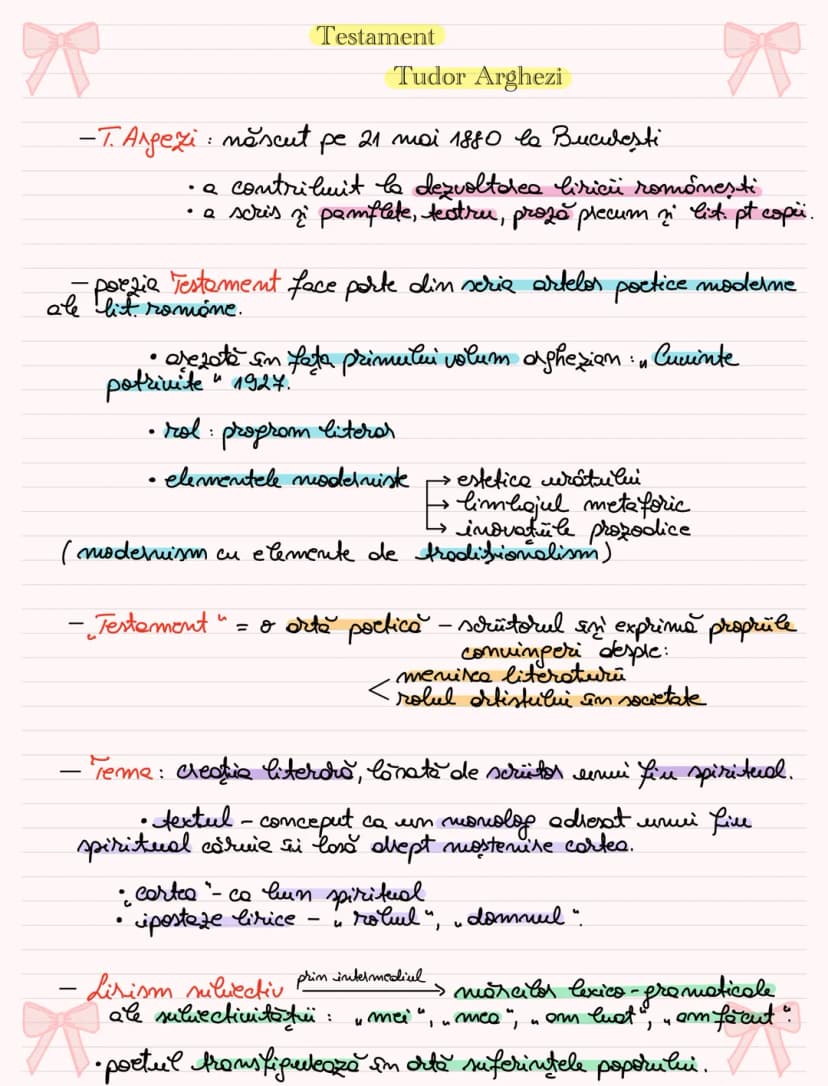 Testament
Tudor Arghezi
– T. Argezi : născut pe 21 mai 1880 la București
• a contribuit la dezvoltarea liricii românești
• a scris și pamflete, teatru, proză precum și lit. pt copii.
– poezia Testament face parte din seria artelor poetice moderne
ale lit. române.
• așezată în fața primului volum arghezian : „Cuvinte
potrivite" 1927.
• rol : program literar
• elementele moderniste → estetica urâtului
→ limbajul metaforic
→ inovațiile prozodice
(modernism cu elemente de tradiționalism)
– „Testament" = o artă poetică – scriitorul își exprimă propriile
convingeri despre:
< menirea literaturii
rolul artistului în societate
– Tema : creația literară, lăsată de scriitor unui fiu spiritual.
• textul – conceput ca un monolog adresat unui fiu
spiritual căruia îi lasă drept moștenire cartea.
• „cartea" – ca bun spiritual
• ipostaze lirice – „robul", „domnul".
– Lirism subiectiv prin intermediul → mărcilor lexico-gramaticale
ale subiectivității : „mei", „mea", „am luat", „am făcut".
• poetul transfigurează în artă suferințele poporului.